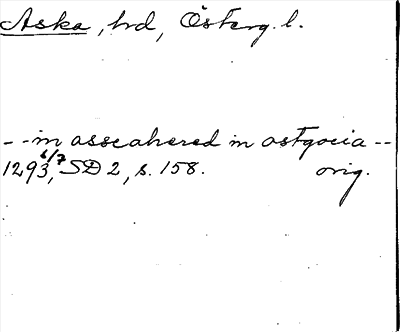 Aska, hrd, Österg. l.
-- in asscahered in ostgocia --
1293, 6/7 SD 2, s. 158. orig.